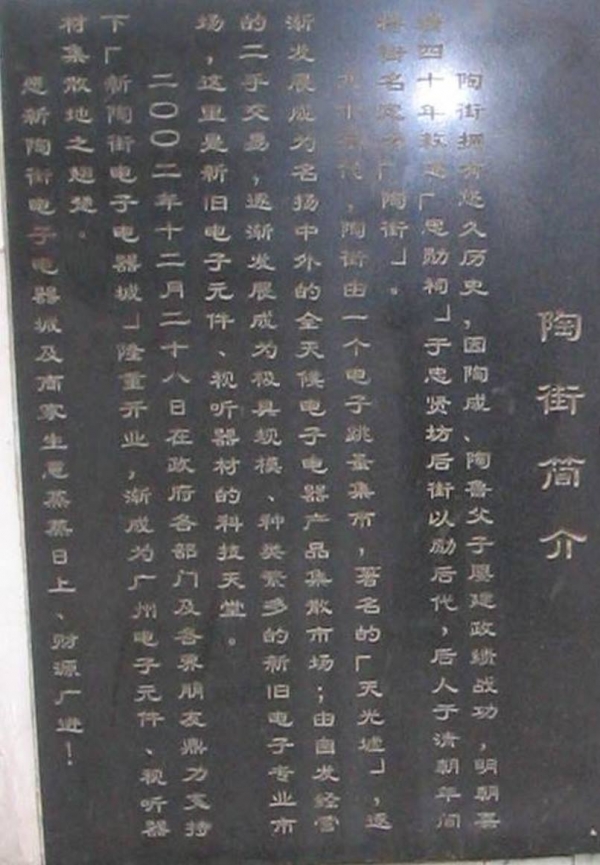 陶街简介
陶街拥有悠久历史，因陶成、陶鲁父子屡建政绩战功，明朝嘉
靖四十年敕建「忠勋祠」于忠贤坊后街以励后代，后人于清朝年间
将街名定为「陶街」。
年代，陶街由一个电子跳蚤集市，著名的「天光墟」，逐
渐发展成为名扬中外的全天候电子电器产品集散市场；由自发经营
的二手交易，逐渐发展成为极具规模、种类繁多的新旧电子专业市
场，这里是新旧电子元件、视听器材的科技天堂。
二〇〇二年十二月二十八日在政府各部门及各界朋友鼎力支持
下「新陶街电子电器城」隆重开业，渐成为广州电子元件、视听器
材集散地之翘楚。
愿新陶街电子电器城及商家生意蒸蒸日上、财源广进！